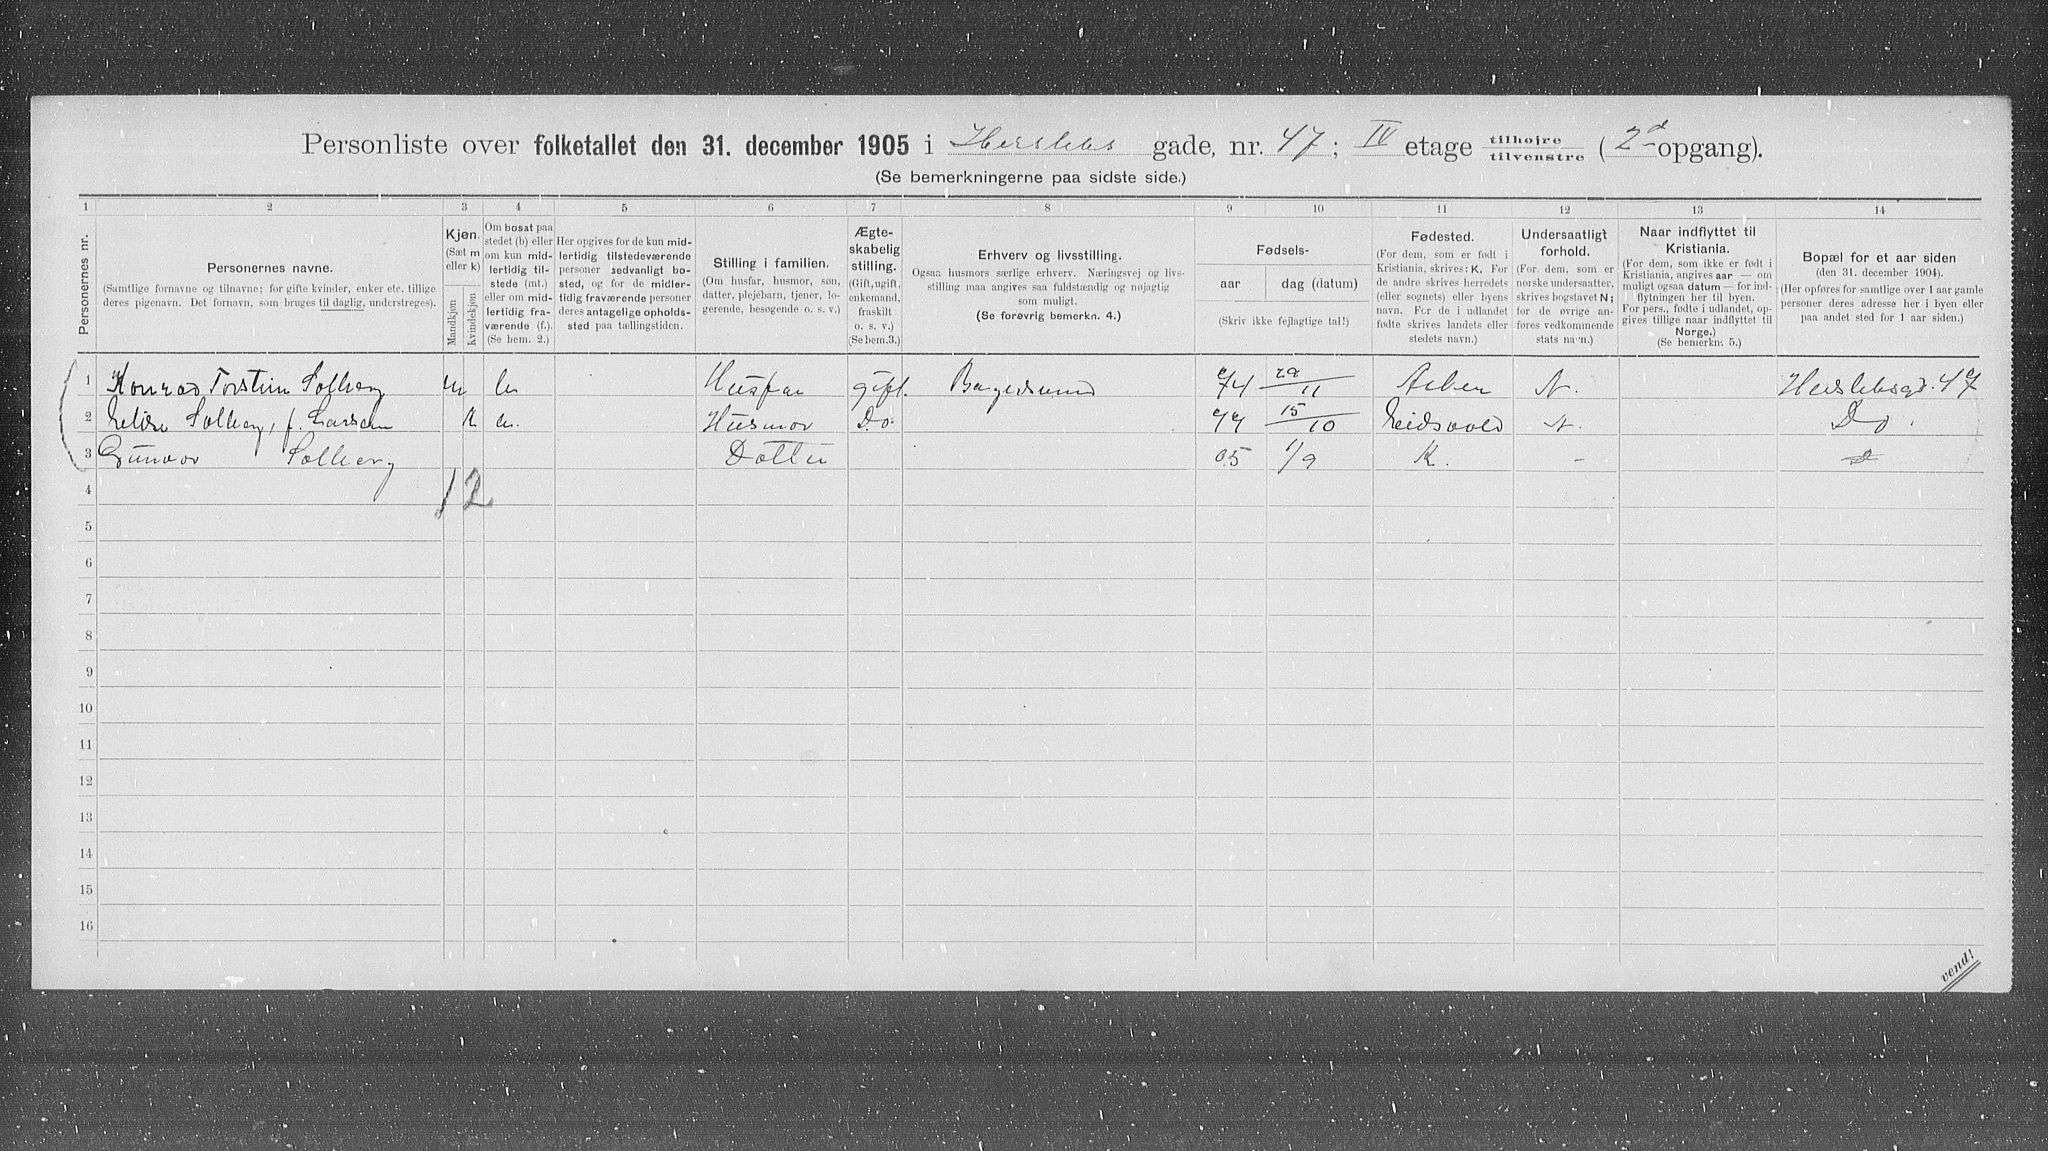 Personliste over folketallet den 31. december 1905 i Herslebs gade, nr. 47; IV etage tilhøjre / tilvenstre (2d opgang).
(Se bemerkningerne paa sidste side.)
1 2 3 4 5 6 7 8 9 10 11 12 13 14
Personernes nr.
Personernes navne.
(Samtlige fornavne og tilnavne; for gifte kvinder, enker etc. tillige
deres pigenavn. Det fornavn, som bruges til daglig, understreges).
Kjøn.
(Sæt m
eller k)
Mandkjøn
Kvindekjøn
Om bosat paa
stedet (b) eller
om kun mid-
lertidig til-
stede (mt.)
eller om mid-
lertidig fra-
værende (f.).
(Se bem. 2.)
Her opgives for de kun mid-
lertidig tilstedeværende
personer sedvanligt bo-
sted, og for de midler-
tidig fraværende personer
deres antagelige opholds-
sted paa tællingstiden.
Stilling i familien.
(Om husfar, husmor, søn,
datter, plejebarn, tjener, lo-
gerende, besøgende o. s. v.)
Ægte-
skabelig
stilling.
(Gift, ugift,
enkemand,
fraskilt
o. s. v.)
(Se bem.3.)
Erhverv og livsstilling.
Ogsaa husmors særlige erhverv. Næringsvej og livs-
stilling maa angives saa fuldstændig og nøjagtig
som muligt.
(Se forøvrig bemerkn. 4.)
Fødsels-
aar dag (datum)
(Skriv ikke fejlagtige tal!)
Fødested.
(For dem, som er født i
Kristiania, skrives: K. For
de andre skrives herredets
(eller sognets) eller byens
navn. For de i udlandet
fødte skrives landets eller
stedets navn.)
Undersaatligt
forhold.
(For dem, som er
norske undersaatter,
skrives bogstavet N;
for de øvrige an-
føres vedkommende
stats navn.)
Naar indflyttet til
Kristiania.
(For dem, som ikke er født i
Kristiania, angives aar — om
muligt ogsaa datum — for ind-
flytningen her til byen.
For pers., fødte i udlandet, op-
gives tillige naar indflyttet til
Norge.)
(Se bemerkn. 5.)
Bopæl for et aar siden
(den 31. december 1904.)
(Her opføres for samtlige over 1 aar gamle
personer deres adresse her i byen eller
paa andet sted for 1 aar siden.)
1 Konrad Torstein Solberg m Husfar gift. 74 29/11 N. Herslebsgd. 47
2 Solberg, f. Larsen k Husmor Do 15/10 Eidsvold N. Do.
3 Gunvor Solberg Datter 05 1/9 K. -
4 1 2
5
6
7
8
9
10
11
12
13
14
15
16
vend!